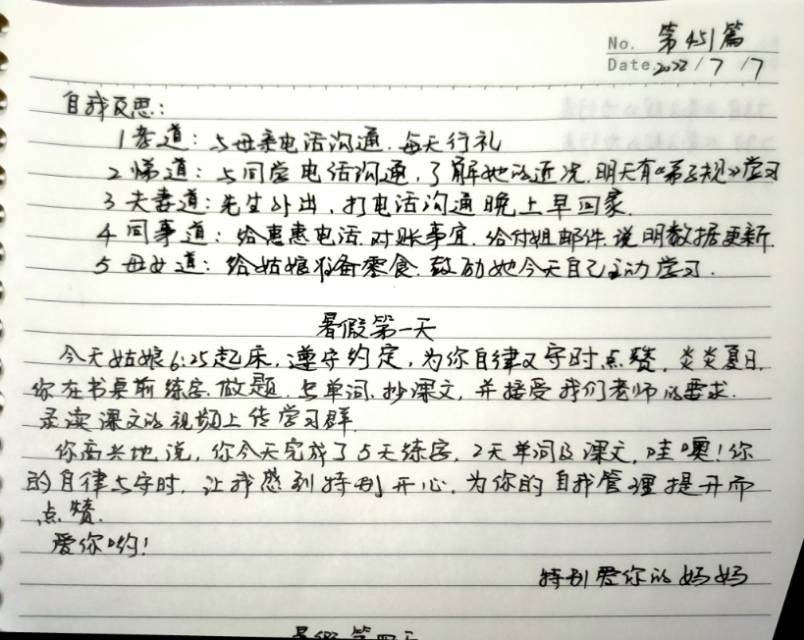 No. 第451篇
Date 2022/7/7
自我反思:
1 孝道: 与母亲电话沟通.每天行礼
2 悌道: 与同学电话沟通,了解她的近况.明天有《弟子规》学习
3 夫妻道: 先生外出,打电话沟通晚上早回家.
4 同事道: 给惠惠电话.对账事宜.给付姐邮件.说明数据更新.
5 母女道: 给姑娘准备零食.鼓励她今天自己主动学习.
暑假第一天
今天姑娘6:25起床,遵守约定,为你自律又守时点赞,炎炎夏日,
你在书桌前练字.做题.写单词.抄课文,并接受我们老师的要求.
录读课文的视频上传学习群.
你高兴地说,你今天完成了5天练字,2天单词及课文,哇噢!你
的自律与守时,让我感到特别开心,为你的自我管理提升而
点赞.
爱你哟!
特别爱你的妈妈